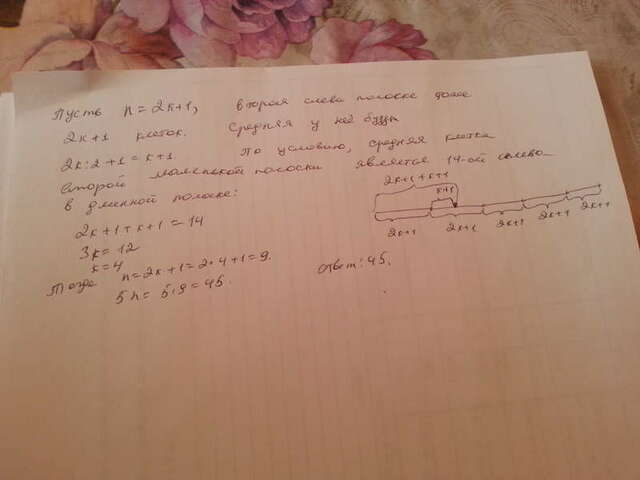 Пусть n = 2k+1, вторая слева полоске тоже
2k+1 клеток. Средняя у неё будет
2k:2+1 = k+1 По условию, средняя клетка
второй маленькой полоски является 14-ой слева
в длинной полоске:
2k+1+k+1 = 14
3k = 12
k = 4
Тогда n = 2k+1 = 2·4+1 = 9.
5n = 5·9 = 45.
Ответ: 45.
2k+1+k+1
k+1
2k+1 2k+1 2k+1 2k+1 2k+1